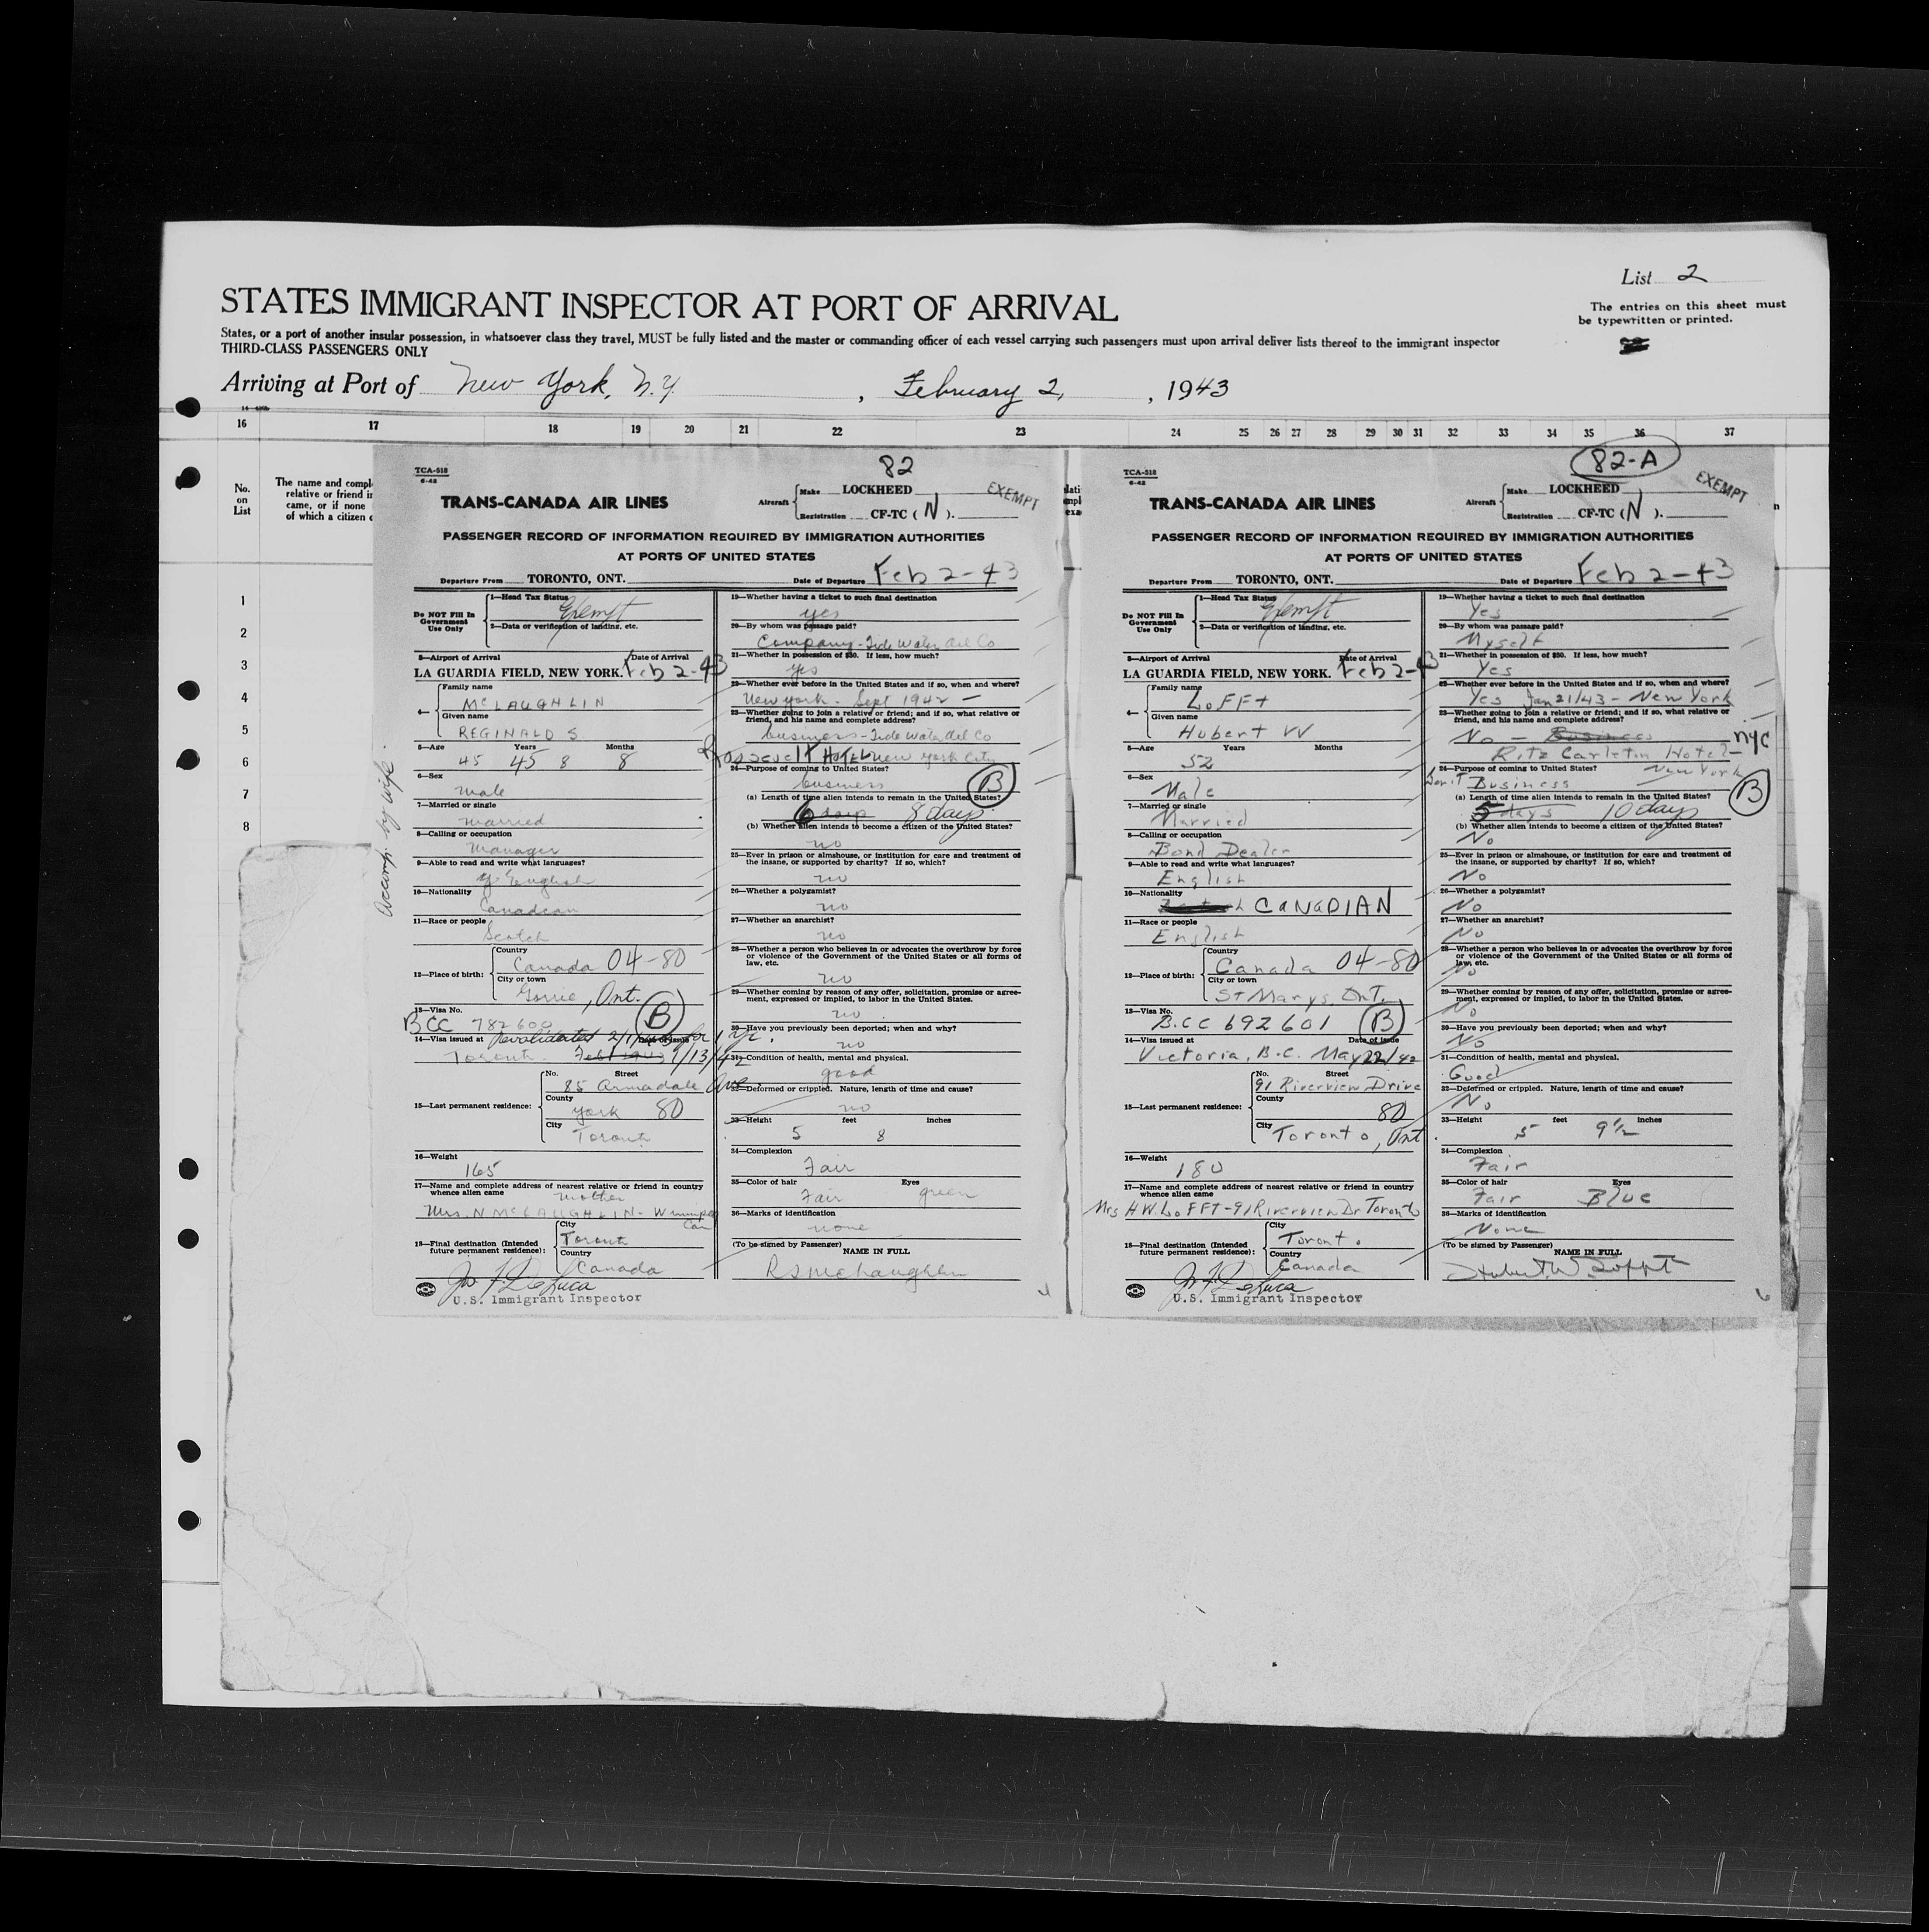 List 2
STATES IMMIGRANT INSPECTOR AT PORT OF ARRIVAL
The entries on this sheet must
be typewritten or printed.
States, or a port of another insular possession, in whatsoever class they travel, MUST be fully listed and the master or commanding officer of each vessel carrying such passengers must upon arrival deliver lists thereof to the immigrant inspector
THIRD-CLASS PASSENGERS ONLY
Arriving at Port of New York, N.Y. , February 2, , 1943
16 17 18 19 20 21 22 23 24 25 26 27 28 29 30 31 32 33 34 35 36 37
No.
on
List
The name and compl
relative or friend in
came, or if none
of which a citizen
1
2
3
4
5
6
7
8
Accomp. by wife.
TCA-518
6-42
82
TRANS-CANADA AIR LINES
Aircraft Make LOCKHEED
Registration CF-TC (N).
EXEMPT
PASSENGER RECORD OF INFORMATION REQUIRED BY IMMIGRATION AUTHORITIES
AT PORTS OF UNITED STATES
Departure From TORONTO, ONT. Date of Departure Feb 2-43
Do NOT Fill In
Government
Use Only
1—Head Tax Status
Exempt
2—Data or verification of landing, etc.
3—Airport of Arrival Date of Arrival
LA GUARDIA FIELD, NEW YORK. Feb 2-43
4— Family name
McLAUGHLIN
Given name
REGINALD S
5—Age Years Months
45 45 8 8
6—Sex
male
7—Married or single
married
8—Calling or occupation
Manager
9—Able to read and write what languages?
English
10—Nationality
Canadian
11—Race or people
Scotch
12—Place of birth: Country
Canada 04-80
City or town
Gorrie, Ont.
13—Visa No.
BCC 782600 B
14—Visa issued at Revalidated for 1 yr.
Toronto
15—Last permanent residence: No. Street
85 Armadale Ave
County
York 80
City
Toronto
16—Weight
165
17—Name and complete address of nearest relative or friend in country
whence alien came mother
Mrs. N McLAUGHLIN - Winnipeg
Can
18—Final destination (Intended
future permanent residence): City
Toronto
Country
Canada
U.S. Immigrant Inspector
19—Whether having a ticket to such final destination
yes
20—By whom was passage paid?
Company - Tide Water Oil Co
21—Whether in possession of $50. If less, how much?
yes
22—Whether ever before in the United States and if so, when and where?
New York - Sept 1942 -
23—Whether going to join a relative or friend; and if so, what relative or
friend, and his name and complete address?
business - Tide Water Oil Co
Roosevelt HOTEL New York City
24—Purpose of coming to United States?
business B
(a) Length of time alien intends to remain in the United States?
6 days 8 days
(b) Whether alien intends to become a citizen of the United States?
no
25—Ever in prison or almshouse, or institution for care and treatment of
the insane, or supported by charity? If so, which?
no
26—Whether a polygamist?
no
27—Whether an anarchist?
no
28—Whether a person who believes in or advocates the overthrow by force
or violence of the Government of the United States or all forms of
law, etc.
no
29—Whether coming by reason of any offer, solicitation, promise or agree-
ment, expressed or implied, to labor in the United States.
no
30—Have you previously been deported; when and why?
no
31—Condition of health, mental and physical.
good
32—Deformed or crippled. Nature, length of time and cause?
no
33—Height feet inches
5 8
34—Complexion
Fair
35—Color of hair Eyes
Fair green
36—Marks of identification
none
(To be signed by Passenger) NAME IN FULL
R S McLaughlin
TCA-518
6-42
82-A
TRANS-CANADA AIR LINES
Aircraft Make LOCKHEED
Registration CF-TC (N).
EXEMPT
PASSENGER RECORD OF INFORMATION REQUIRED BY IMMIGRATION AUTHORITIES
AT PORTS OF UNITED STATES
Departure From TORONTO, ONT. Date of Departure Feb 2-43
Do NOT Fill In
Government
Use Only
1—Head Tax Status
Exempt
2—Data or verification of landing, etc.
3—Airport of Arrival Date of Arrival
LA GUARDIA FIELD, NEW YORK. Feb 2-43
4— Family name
LoFFt
Given name
Hubert W
5—Age Years Months
52
6—Sex
Male
7—Married or single
Married
8—Calling or occupation
Bond Dealer
9—Able to read and write what languages?
English
10—Nationality
CANADIAN
11—Race or people
English
12—Place of birth: Country
Canada 04-80
City or town
St Marys, Ont.
13—Visa No.
B.C.C 692601 B
14—Visa issued at Date of Issue
Victoria, B.C. May 22/42
15—Last permanent residence: No. Street
91 Riverview Drive
County
80
City
Toronto, Ont.
16—Weight
180
17—Name and complete address of nearest relative or friend in country
whence alien came
Mrs H W LoFFT - 91 Riverview Dr Toronto
18—Final destination (Intended
future permanent residence): City
Toronto
Country
Canada
U.S. Immigrant Inspector
19—Whether having a ticket to such final destination
Yes
20—By whom was passage paid?
Myself
21—Whether in possession of $50. If less, how much?
Yes
22—Whether ever before in the United States and if so, when and where?
Yes Jan 21/43 - New York
23—Whether going to join a relative or friend; and if so, what relative or
friend, and his name and complete address?
No - Business nyc
Ritz Carleton Hotel -
New York
24—Purpose of coming to United States?
Business B
(a) Length of time alien intends to remain in the United States?
5 days 10 days
(b) Whether alien intends to become a citizen of the United States?
No
25—Ever in prison or almshouse, or institution for care and treatment of
the insane, or supported by charity? If so, which?
No
26—Whether a polygamist?
No
27—Whether an anarchist?
No
28—Whether a person who believes in or advocates the overthrow by force
or violence of the Government of the United States or all forms of
law, etc.
No
29—Whether coming by reason of any offer, solicitation, promise or agree-
ment, expressed or implied, to labor in the United States.
No
30—Have you previously been deported; when and why?
No
31—Condition of health, mental and physical.
Good
32—Deformed or crippled. Nature, length of time and cause?
No
33—Height feet inches
5 9½
34—Complexion
Fair
35—Color of hair Eyes
Fair Blue
36—Marks of identification
None
(To be signed by Passenger) NAME IN FULL
Hubert W. Lofft